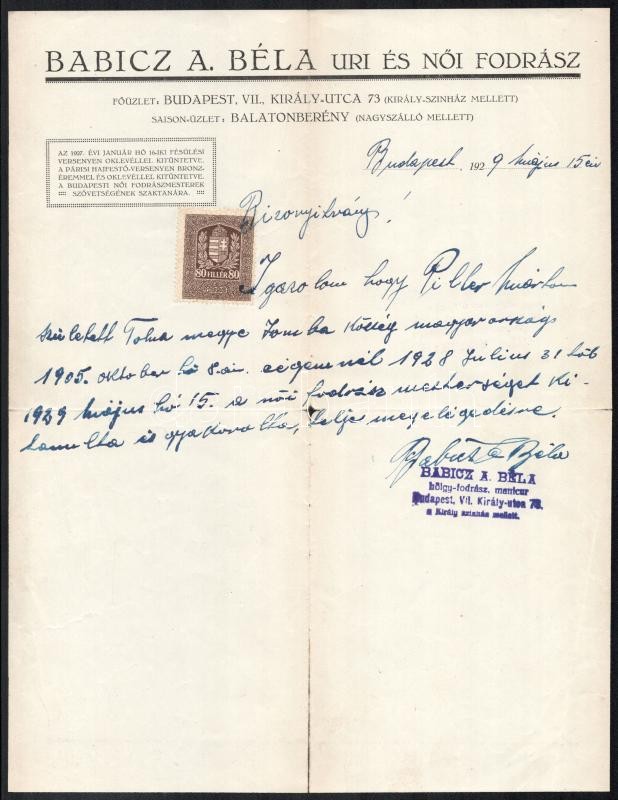 BABICZ A. BÉLA URI ÉS NŐI FODRÁSZ
FŐÜZLET: BUDAPEST, VII., KIRÁLY-UTCA 73 (KIRÁLY-SZINHÁZ MELLETT)
SAISON-ÜZLET: BALATONBERÉNY (NAGYSZÁLLÓ MELLETT)
AZ 1927. ÉVI JANUÁR HÓ 16-IKI FÉSÜLÉSI
VERSENYEN OKLEVÉLLEL KITÜNTETVE.
A PÁRISI HAJFESTŐ-VERSENYEN BRONZ-
ÉREMMEL ÉS OKLEVÉLLEL KITÜNTETVE.
A BUDAPESTI NŐI FODRÁSZMESTEREK
SZÖVETSÉGÉNEK SZAKTANÁRA.
Budapest, 1929 május 15 én
Bizonyitvány!
80 FILLÉR 80
Igazolom hogy Piller Márton
született Tolna megye Tomba Község magyarország
1905. oktober hó 8án cégemnél 1928 Julius 31 től
1929 május hó 15. a női fodrász mesterséget ki
tanulta és gyakorolta, teljes megelégedésre.
Babicz A Béla
BABICZ A. BÉLA
hölgy-fodrász, manicur
Budapest, VII. Király-utca 73.
a Király szinház mellett.